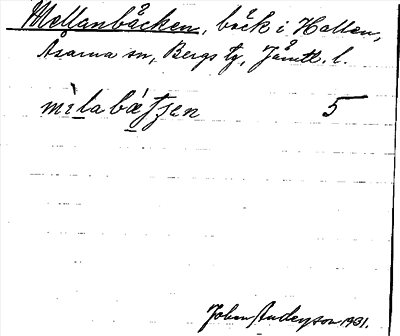 Mellanbäcken, bäck i Hallen,
Åsarna sn, Bergs tg, Jämtl. l.
5
John Anderson 1931.